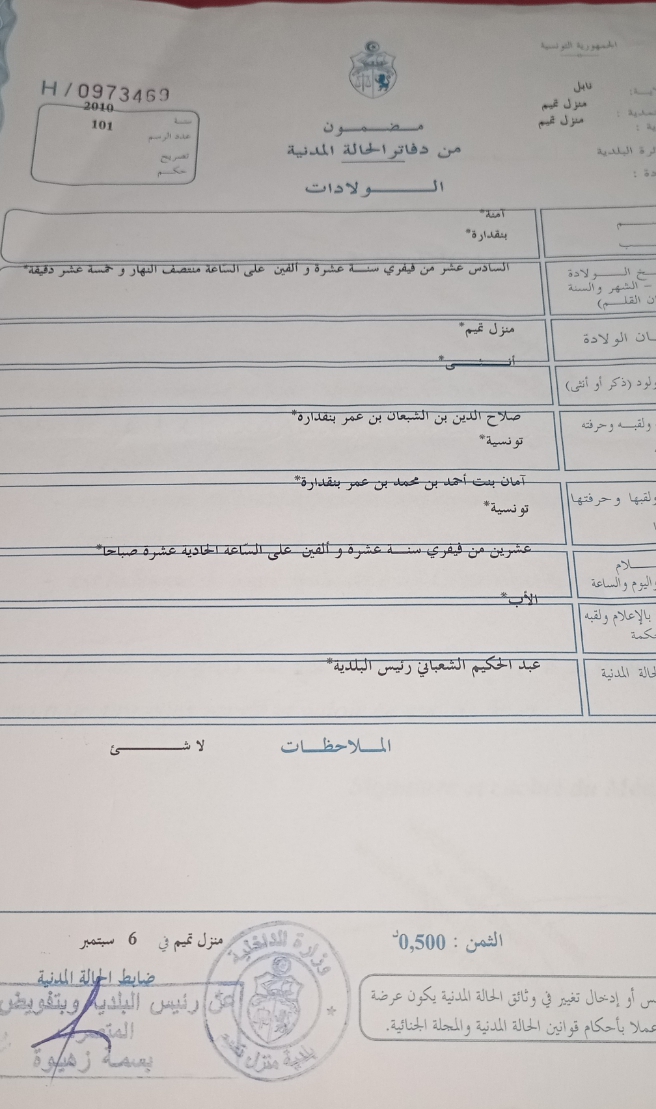 الجمهورية التونسية
H/0973469
نابل
منزل تميم
منزل تميم
2010
101
سنة
عدد الرسم
تصريح
حكم
مضمون
من دفاتر الحالة المدنية
الولادات
البلدية
آمنة*
بنقدارة*
السادس عشر من فيفري سنة عشرة و ألفين على الساعة منتصف النهار و خمسة عشر دقيقة*
الولادة
الشهر والسنة
منزل تميم*
الولادة
أنثى*
(ذكر أو أنثى)
صلاح الدين بن الشبعان بن عمر بنقدارة*
ولقبه وحرفته
تونسية*
آمان بنت أحمد بن محمد بن عمر بنقدارة*
وحرفتها
تونسية*
عشرين من فيفري سنة عشرة و ألفين على الساعة الحادية عشرة صباحا*
واليوم والساعة
الأب*
بالإعلام ولقبه
عبد الحكيم الشعباني رئيس البلدية*
المدنية
الملاحظات لا شئ
الثمن : 0,500د
منزل تميم في 6 سبتمبر
ضابط الحالة المدنية
عن رئيس البلدية وبتفويض
بسمة زهيوة
وزارة الداخلية
بلدية منزل تميم
أو إدخال تغيير في وثائق الحالة المدنية يكون عرضة
عملا بأحكام قوانين الحالة المدنية والمجلة الجنائية.